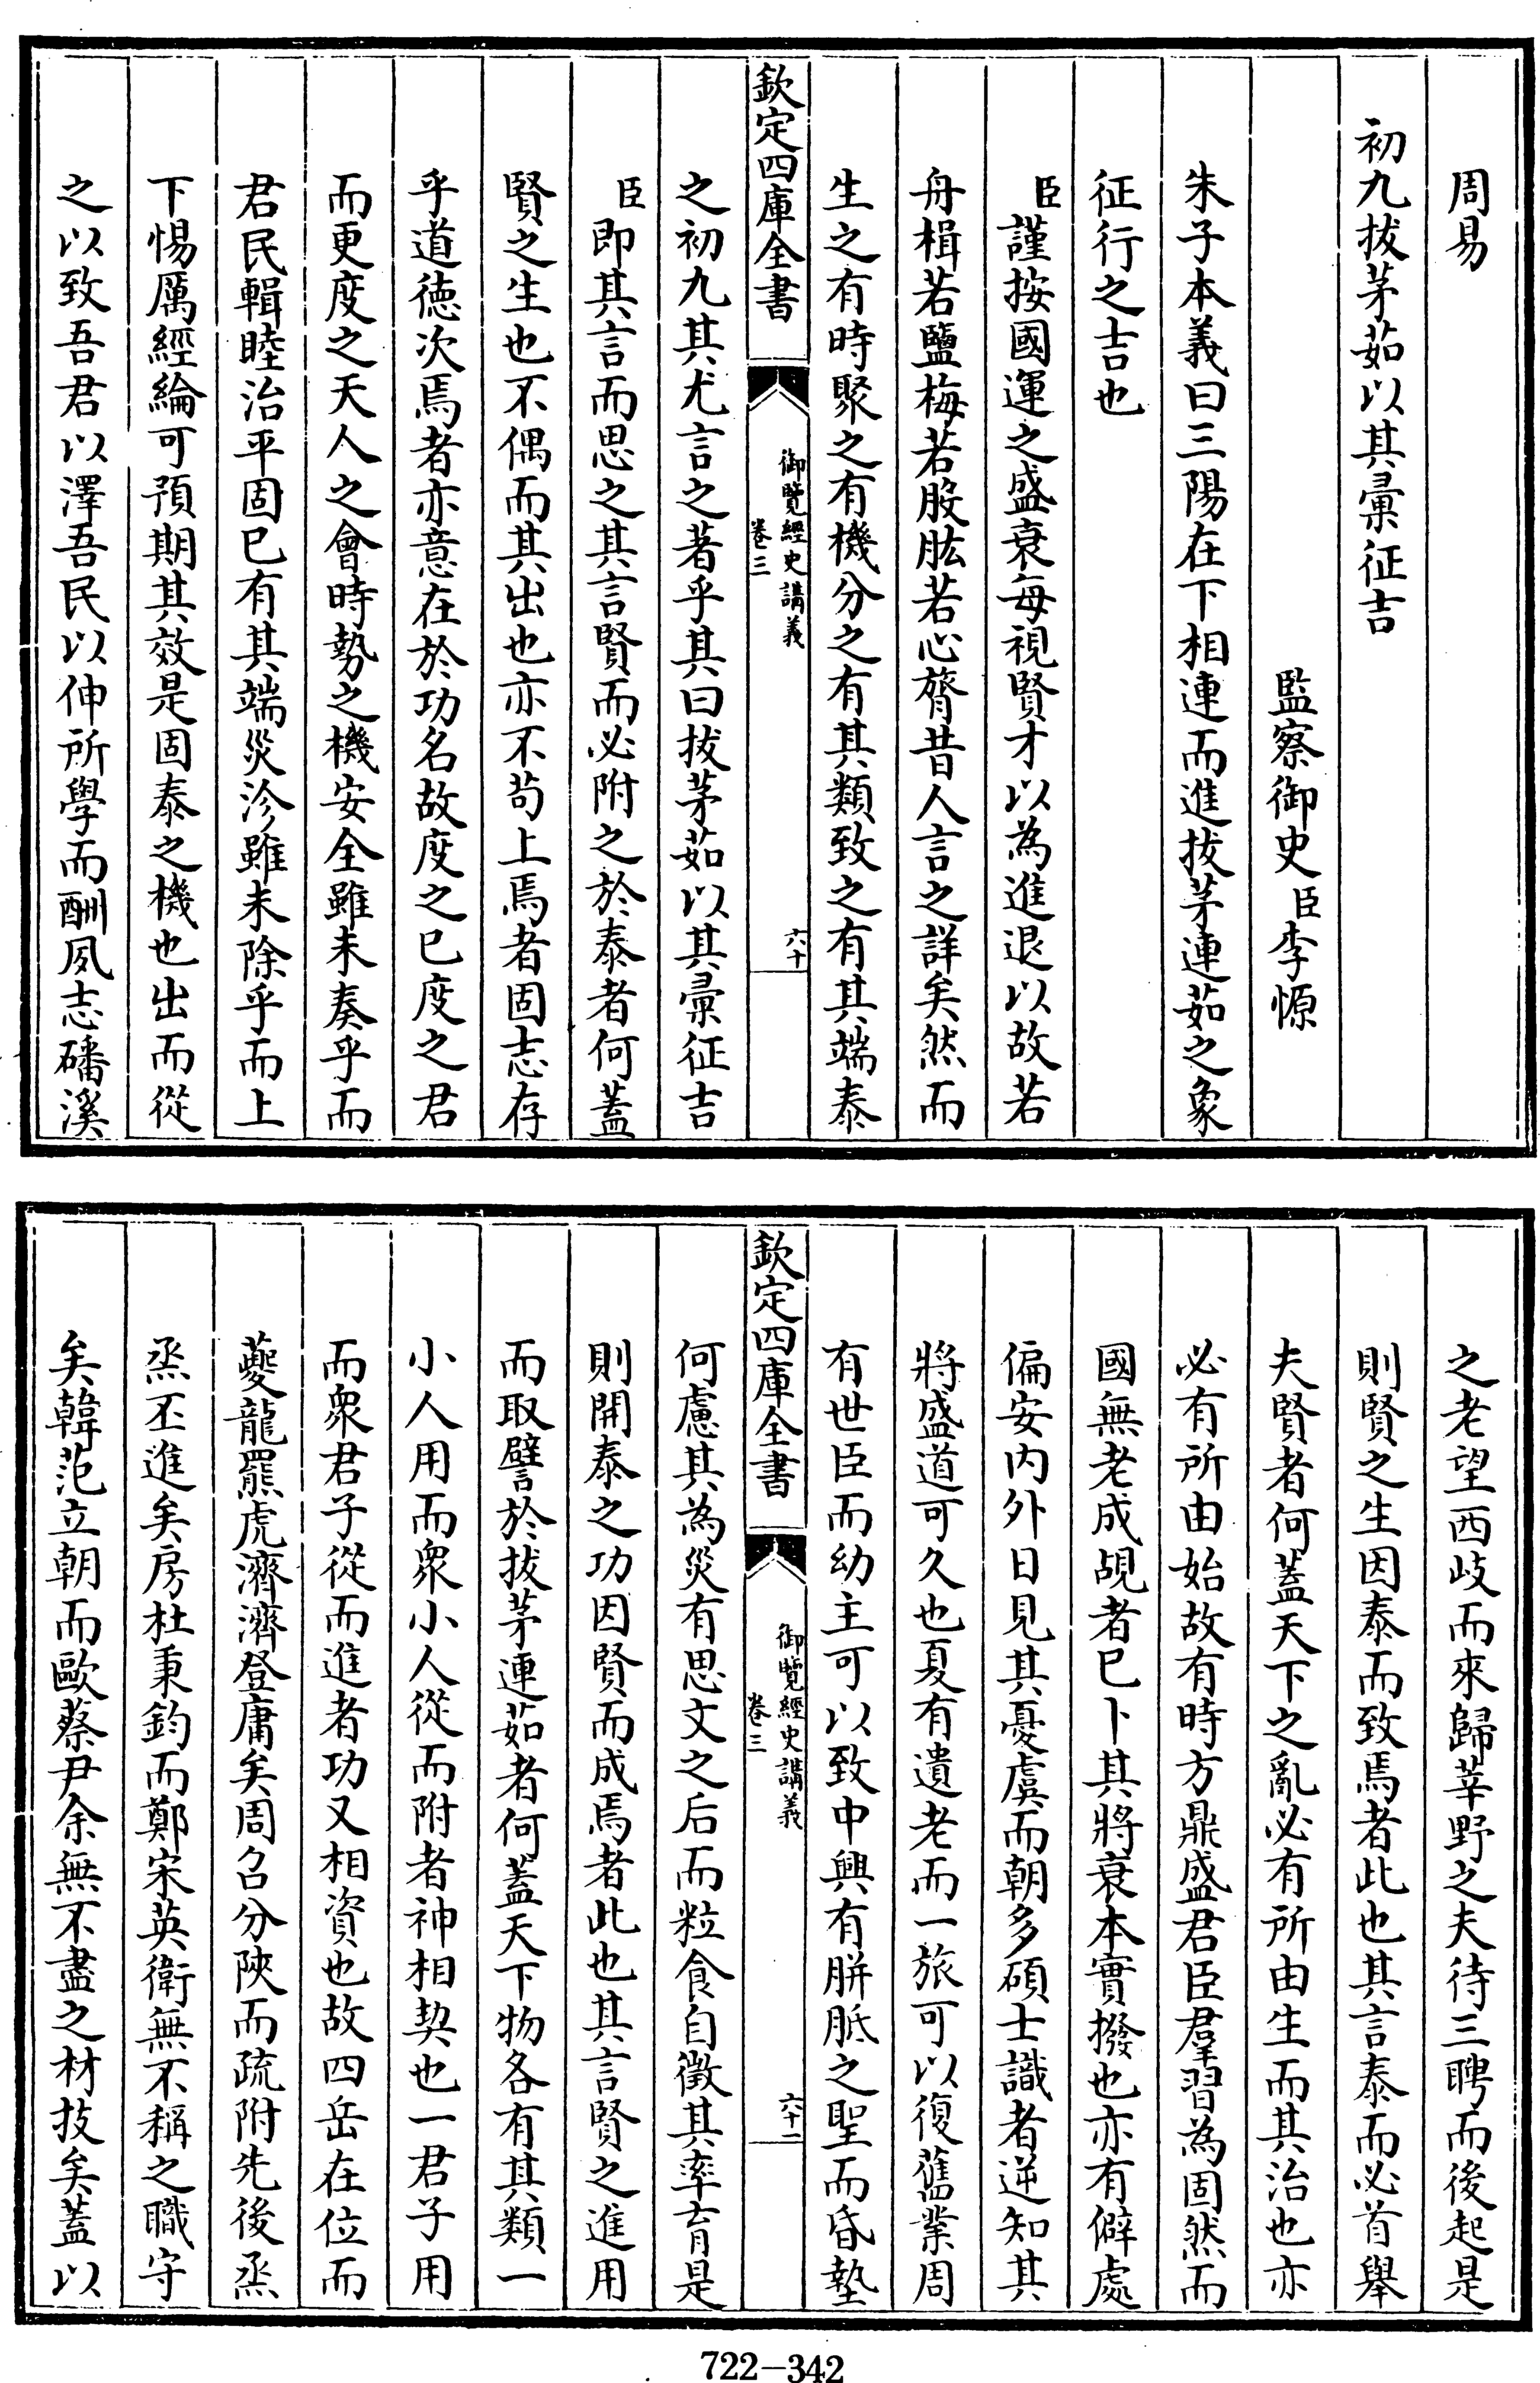 周易
初九拔茅茹以其彚征吉
監察御史臣李㥳
朱子本義曰三陽在下相連而進拔茅連茹之象
征行之吉也
臣謹按國運之盛衰每視賢才以為進退以故若
舟楫若鹽梅若股肱若心膂昔人言之詳矣然而
生之有時聚之有機分之有其類致之有其端泰
欽定四庫全書
御覽經史講義
卷三
六十
之初九其尤言之著乎其曰拔茅茹以其彚征吉
臣即其言而思之其言賢而必附之於泰者何蓋
賢之生也不偶而其出也亦不苟上焉者固志存
乎道德次焉者亦意在於功名故度之已度之君
而更度之天人之會時勢之機安全雖未奏乎而
君民輯睦治平固已有其端災沴雖未除乎而上
下惕厲經綸可預期其效是固泰之機也出而從
之以致吾君以澤吾民以伸所學而酬夙志磻溪
之老望西歧而來歸莘野之夫待三聘而後起是
則賢之生因泰而致焉者此也其言泰而必首舉
夫賢者何蓋天下之亂必有所由生而其治也亦
必有所由始故有時方鼎盛君臣羣習為固然而
國無老成覘者已卜其將衰本實撥也亦有僻處
偏安内外日見其憂虞而朝多碩士識者逆知其
將盛道可久也夏有遺老而一旅可以復舊業周
有世臣而幼主可以致中興有胼胝之聖而昏墊
欽定四庫全書
御覽經史講義
卷三
六十一
何慮其為災有思文之后而粒食自徵其率育是
則開泰之功因賢而成焉者此也其言賢之進用
而取譬於拔茅連茹者何蓋天下物各有其類一
小人用而衆小人從而附者神相契也一君子用
而衆君子從而進者功又相資也故四岳在位而
夔龍羆虎濟濟登庸矣周召分陜而疏附先後烝
烝丕進矣房杜秉鈞而鄭宋英衛無不稱之職守
矣韓范立朝而歐蔡尹余無不盡之材技矣蓋以
722-342